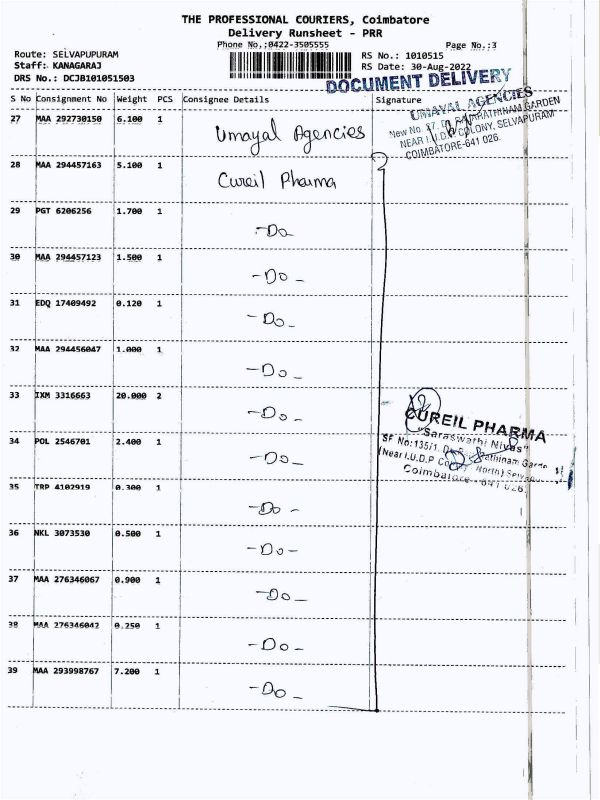 THE PROFESSIONAL COURIERS, Coimbatore
Delivery Runsheet - PRR
Phone No.:0422-3505555 Page No.:3
Route: SELVAPUPURAM RS No.: 1010515
Staff: KANAGARAJ RS Date: 30-Aug-2022
DRS No.: DCJB101051503
DOCUMENT DELIVERY
S No Consignment No Weight PCS Consignee Details Signature
27 MAA 292730150 6.100 1 Umayal Agencies
UMAYAL AGENCIES
New No. 37, GARDEN
NEAR I.U.D.P COLONY, SELVAPURAM
COIMBATORE-641 026.
28 MAA 294457163 5.100 1 Cureil Pharma
29 PGT 6206256 1.700 1 -Do
30 MAA 294457123 1.500 1 -Do-
31 EDQ 17409492 0.120 1 -Do-
32 MAA 294456047 1.000 1 -Do-
33 IXM 3316663 20.000 2 -Do-
CUREIL PHARMA
"Saraswathi Nivas"
SF No:135/1,
(Near I.U.D.P North)
Coimbatore - 641 026.
34 POL 2546701 2.400 1 -Do-
35 TRP 4102919 0.300 1 -Do-
36 NKL 3073530 0.500 1 -Do-
37 MAA 276346067 0.900 1 -Do-
38 MAA 276346042 0.250 1 -Do-
39 MAA 293998767 7.200 1 -Do-